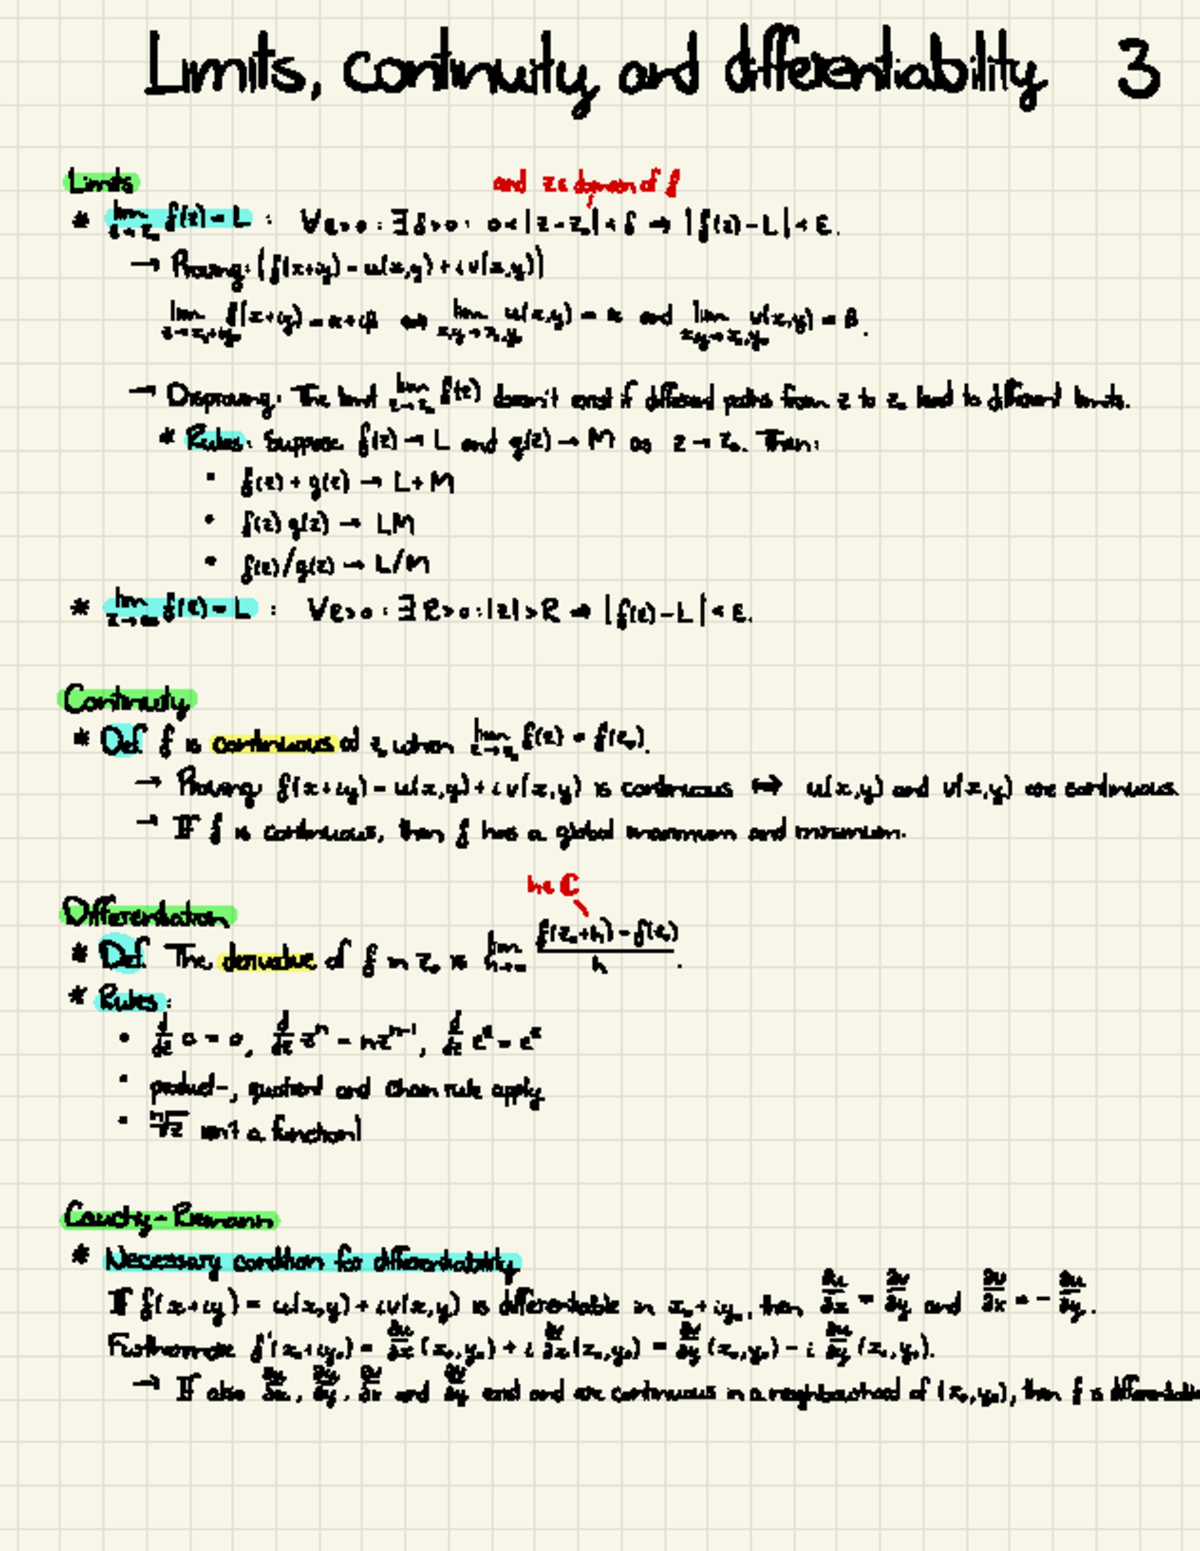 Limits, continuity and differentiability 3
Limits
and z ∈ domain of f
* lim z→z₀ f(z) = L : ∀ε>0 : ∃δ>0 : 0<|z-z₀|<δ ⇒ |f(z)-L|<ε.
→ Proving: (f(x+iy) = u(x,y) + iv(x,y))
lim z→x₀+iy₀ f(x+iy) = α+iβ ⇔ lim x,y→x₀,y₀ u(x,y) = α and lim x,y→x₀,y₀ v(x,y) = β.
→ Disproving: The limit lim z→z₀ f(z) doesn't exist if different paths from z to z₀ lead to different limits.
* Rules: Suppose f(z) → L and g(z) → M as z → z₀. Then:
• f(z) + g(z) → L+M
• f(z) g(z) → LM
• f(z)/g(z) → L/M
* lim z→∞ f(z) = L : ∀ε>0 : ∃R>0 : |z|>R ⇒ |f(z)-L|<ε.
Continuity
* Def. f is continuous at z₀ when lim z→z₀ f(z) = f(z₀).
→ Proving: f(x+iy) = u(x,y) + iv(x,y) is continuous ⇔ u(x,y) and v(x,y) are continuous.
→ If f is continuous, then f has a global maximum and minimum.
h∈ℂ
Differentiation
* Def. The derivative of f in z₀ is lim (f(z₀+h) - f(z₀))/h.
* Rules:
• d/dz a = 0, d/dz zⁿ = nzⁿ⁻¹, d/dz eᶻ = eᶻ
• product-, quotient and chain rule apply
• ⁿ√z isn't a function!
Cauchy-Riemann
* Necessary condition for differentiability
If f(x+iy) = u(x,y) + iv(x,y) is differentiable in x₀+iy₀, then ∂u/∂x = ∂v/∂y and ∂v/∂x = - ∂u/∂y.
Furthermore f'(x₀+iy₀) = ∂u/∂x (x₀,y₀) + i ∂v/∂x (x₀,y₀) = ∂v/∂y (x₀,y₀) - i ∂u/∂y (x₀,y₀).
→ If also ∂u/∂x, ∂u/∂y, ∂v/∂x and ∂v/∂y exist and are continuous in a neighbourhood of (x₀,y₀), then f is